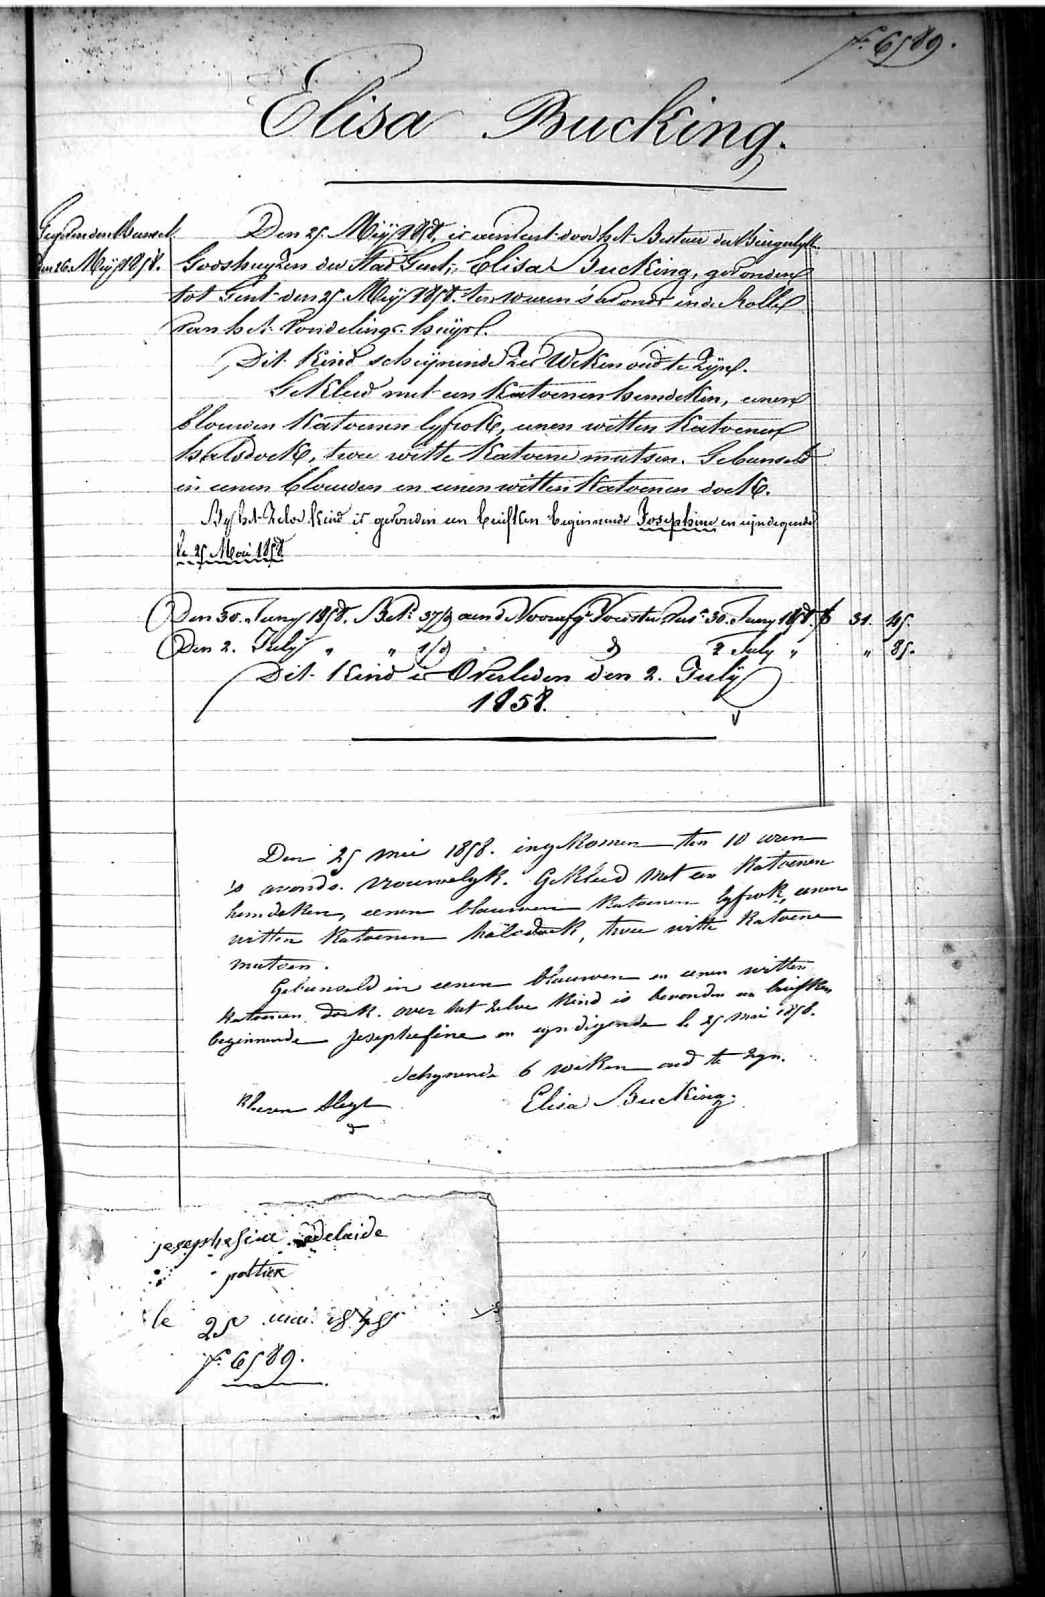 f.º 6589.
Elisa Bucking.
den 26. Meÿ 1858.
Den 25. Meÿ 1858. is aenveert door het Bestier der Burgerlyke
Godshuyzen der Stad Gent, Elisa Bucking, gevonden
tot Gent den 25 Meÿ 1858. ten uren 's avonds in de Rolle
van het Vondelings-huÿs.
Dit Kind schijnende zes Weken oud te zijn.
Gekleed met een Katoenen hemdeken, eenen
blauwen Katoenen lyfrok, eenen witten Katoenen
halsdoek, twee witte Katoene mutsen. Gebunseld
in eenen blauwen en eenen witten Katoenen doek.
By het zelve Kind is gevonden een briefken beginnende Josephine en eijndigende
le 25 Mai 1858
Den 30. Juny 1858. 37/d aen de Voedster 30. Juny 1858. f 31. 45.
Den 2. July " " 1/d d 2 July " " 85.
Dit Kind is Overleden den 2. Julÿ
1858.
Den 25 mei 1858. ingekomen ten 10 uren
's avonds. vrouwelyk. Gekleed met een Katoenen
hemdeken, eenen blauwen Katoenen lyfrok, eenen
witten Katoenen halsdoek, twee witte Katoene
mutsen.
Gebunseld in eenen blauwen en eenen witten
Katoenen doek. over het zelve Kind is bevonden een briefken
beginnende josephefine en eyndigende le 25 mai 1858.
schynende 6 weken oud te zyn.
Elisa Bucking.
josephefine adelaide
pottier
le 25 mai 1858
f.º 6589.